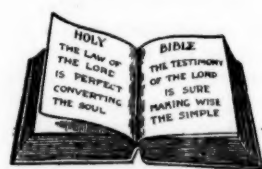 HOLY
THE LAW OF
THE LORD
IS PERFECT
CONVERTING
THE SOUL
BIBLE
THE TESTIMONY
OF THE LORD
IS SURE
MAKING WISE
THE SIMPLE